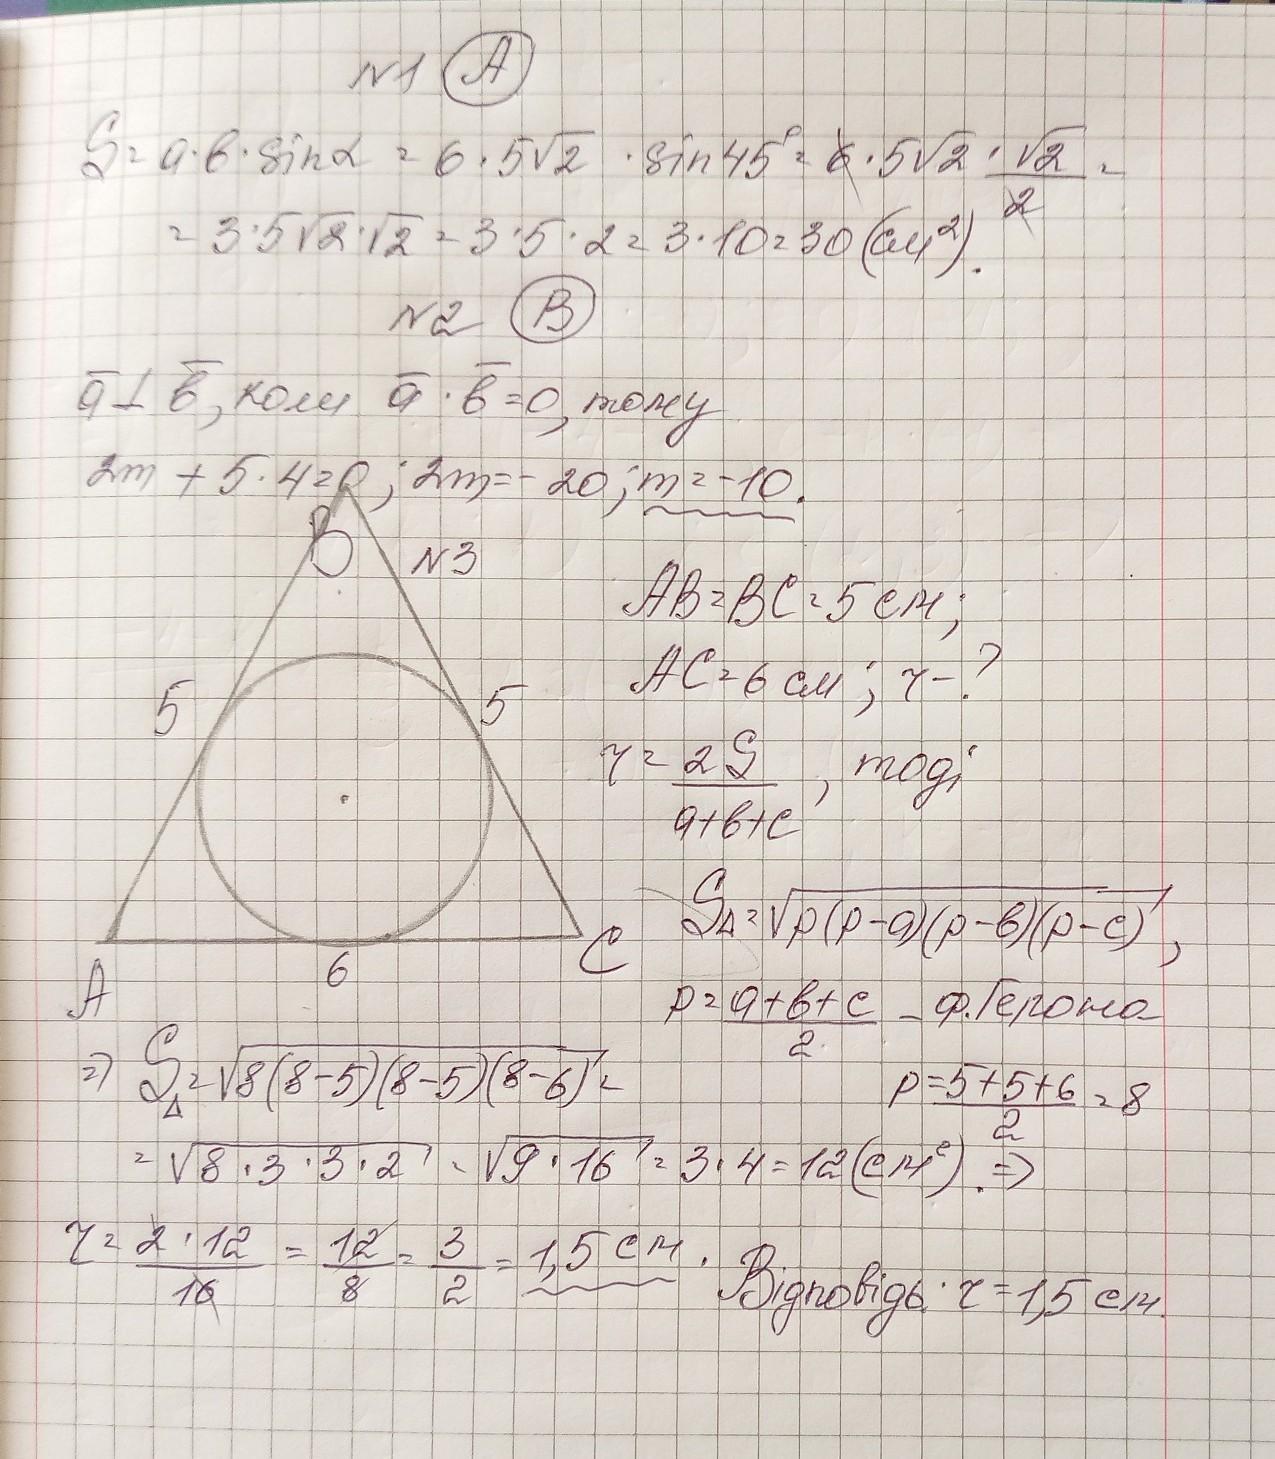 №1 (А)
S = a·b·sinα = 6·5√2 ·sin45° = 6·5√2·√2/2 =
= 3·5√2·√2 = 3·5·2 = 3·10 = 30 (см²).
№2 (В)
a̅ ⊥ b̅, коли a̅·b̅ = 0, тому
2m + 5·4 = 0; 2m = -20; m = -10.
B
№3
AB = BC = 5 см;
AC = 6 см; r - ?
5 5
r = 2S/(a+b+c), тоді
S△ = √(p(p-a)(p-b)(p-c)),
A 6 C
p = (a+b+c)/2 - ф. Герона
=> S△ = √(8(8-5)(8-5)(8-6)) =
p = (5+5+6)/2 = 8
= √(8·3·3·2) = √(9·16) = 3·4 = 12 (см²). =>
r = 2·12/16 = 12/8 = 3/2 = 1,5 см. Відповідь: r = 1,5 см.